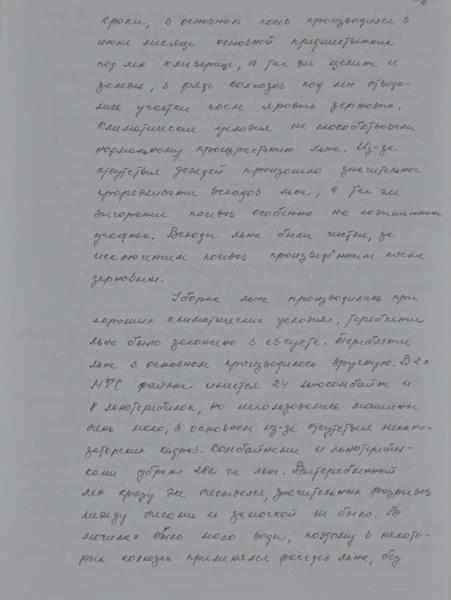 сроки, в основном посев производился в
июне месяце основной предшественник
под лен клеверище, а так же целина и
залежь, в ряде колхозов под лен отводи-
лись участки после яровых зерновых.
Климатические условия не способствовали
нормальному произрастанию льна. Из-за
отсутствия дождей произошло значительное
прореживание всходов льна, а так же
выгорание посевов особенно на повышенных
участках. Всходы льна были чистые, за
исключением посевов произведённых после
зерновых.
Уборка льна производилась при
хороших климатических условиях, теребление
льна было закончено в августе. Теребление
льна в основном производилось вручную. В 2х
МТС района имеется 24 льнокомбайна и
8 льнотеребилок, но использовались машины
очень мало, в основном из-за отсутствия механи-
заторских кадров. Комбайнами и льнотеребил-
ками убрано 282 га льна. Вытеребленный
лен сразу же очесывался, значительных разрывов
между очесом и замочкой не было. В
мочилах было мало воды, поэтому в некото-
рых колхозах применялся льна, без